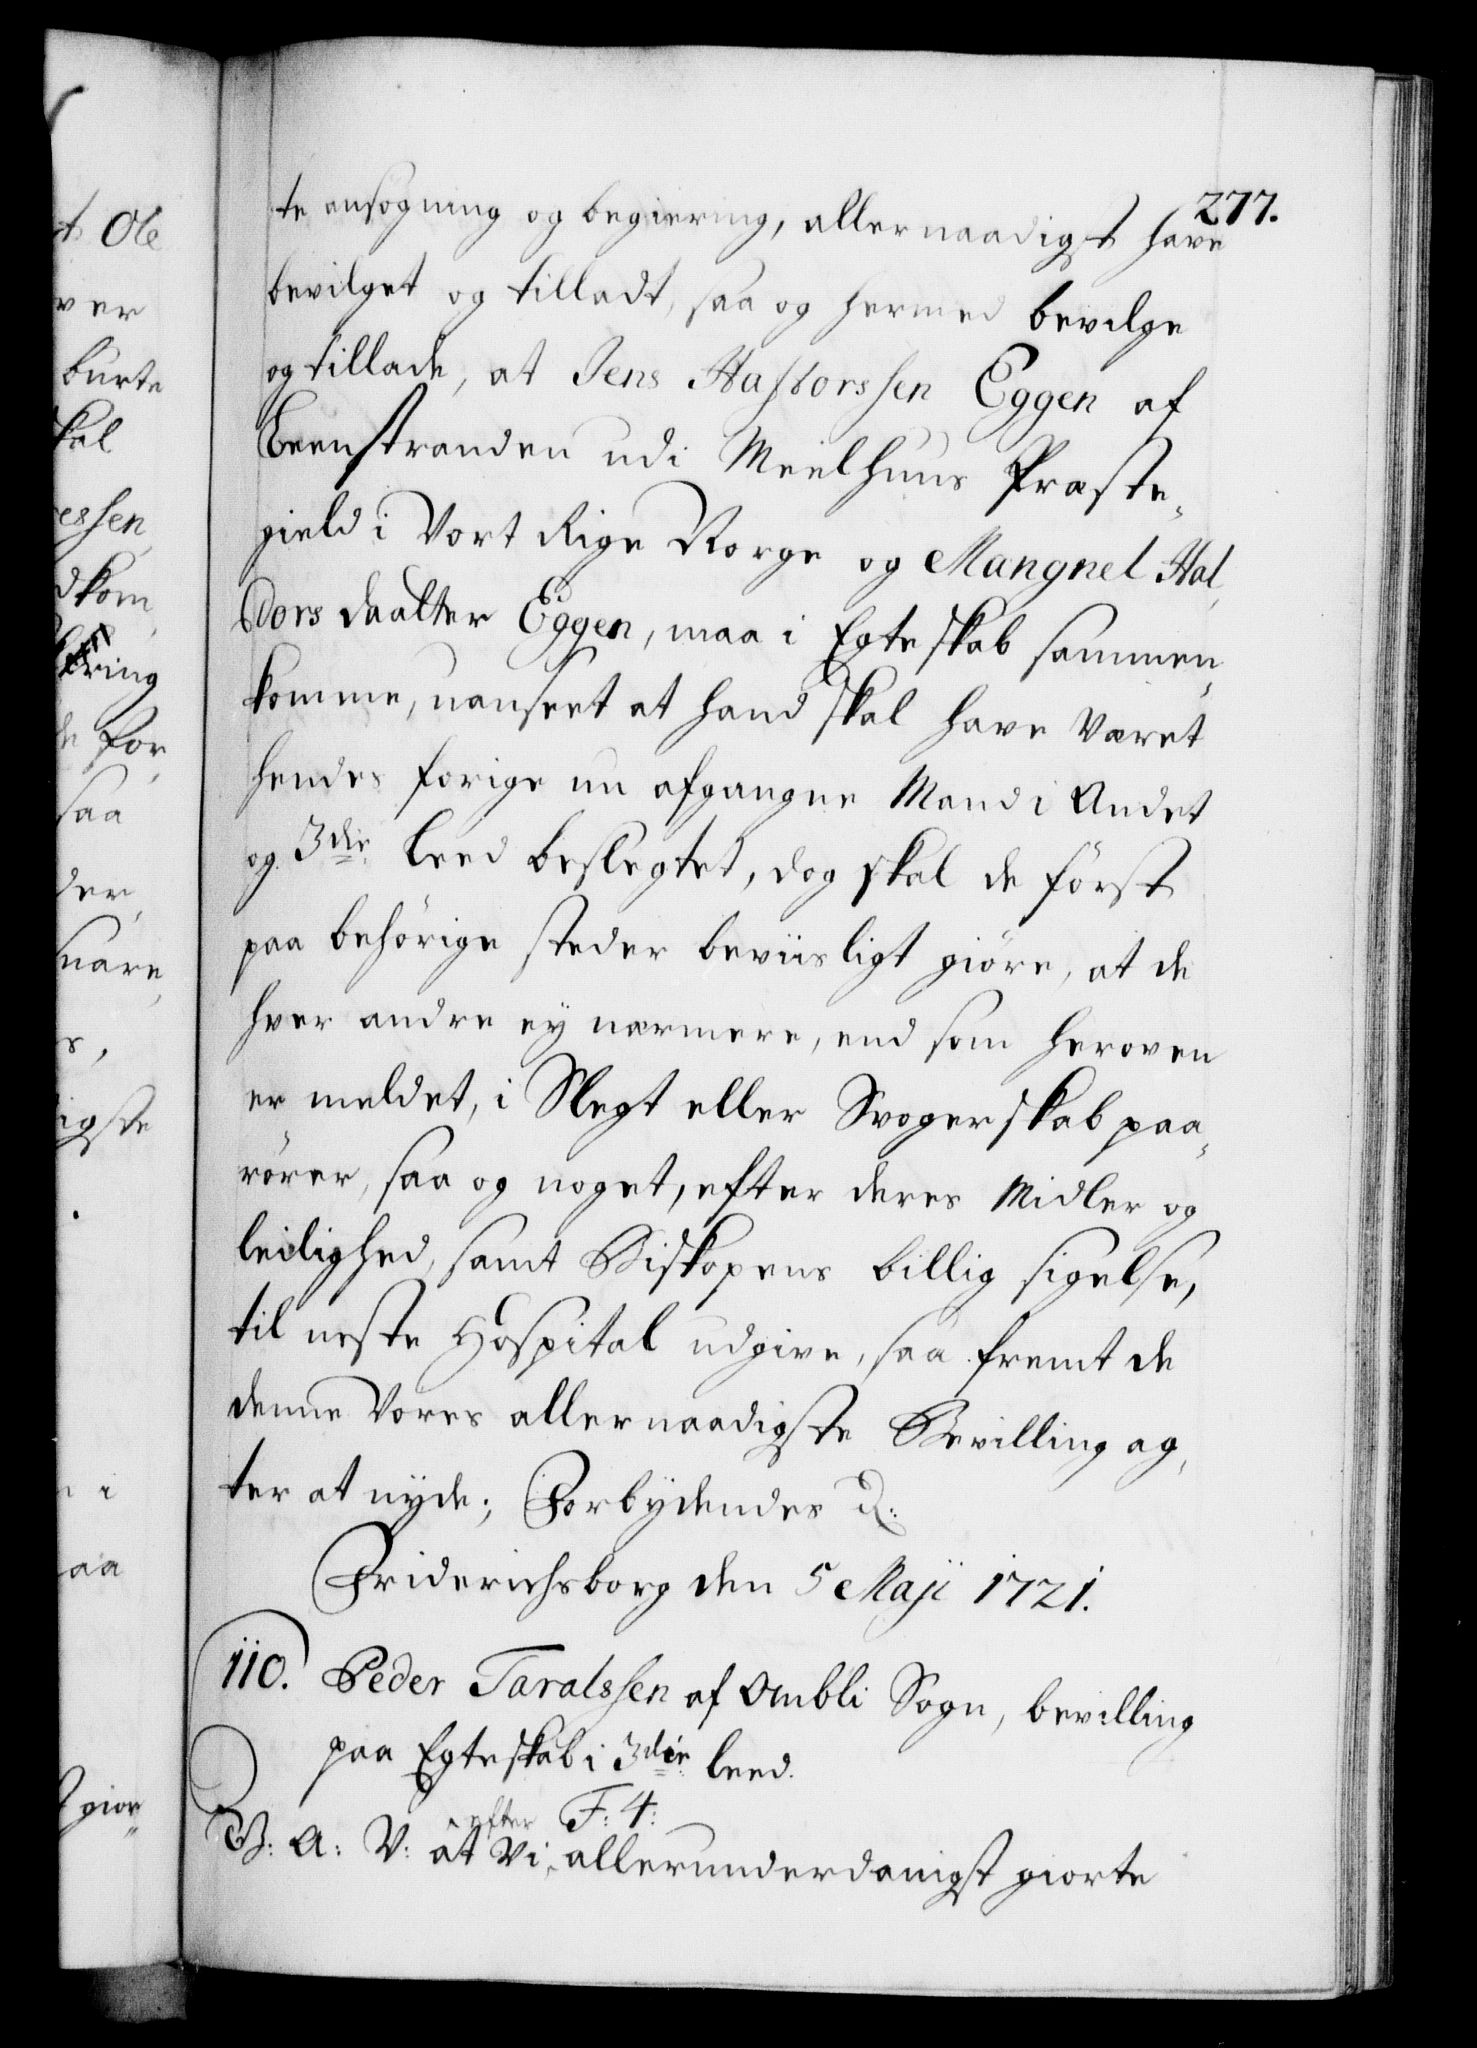 277.
te ansøgning og begiering, allernaadigst have
bevilget og tilladt, saa og hermed bevilge
og tillade, at Jens Hastorssen Eggen af
Leenstranden udi Meelhuus Præste-
gield i Vort Rige Norge og Mangnel Hal-
dors daatter Eggen, maa i Egteskab sammen-
komme, uanseet at hand skal have Været
hendes forige nu afgangne Mand i Andet
og 3die Leed beslegtet, dog skal de først
paa behørige steder beviisligt giøre, at de
hver andre ey nærmere, end som heroven
er meldet, i Slegt eller Svogerskab paa-
rører, saa og noget, efter deres Midler og
leilighed, samt Biskopens billig sigelse,
til neste Hospital udgive, saa fremt de
denne Vores allernaadigste Bevilling ag-
ter at nyde; Forbydendes &:
Friderichsborg den 5 Maji 1721.
110. Peder Taralssen af Ombli Sogn, bevilling
paa Egteskab i 3die leed.
F: 4:
V: A: V: at Vi, efter allerunderdanigst giorte
t Ole
ver
burte
skal
essen,
dkom-
ring
de for-
saa
der,
nare,
s,
igste
n i
aa
giør-